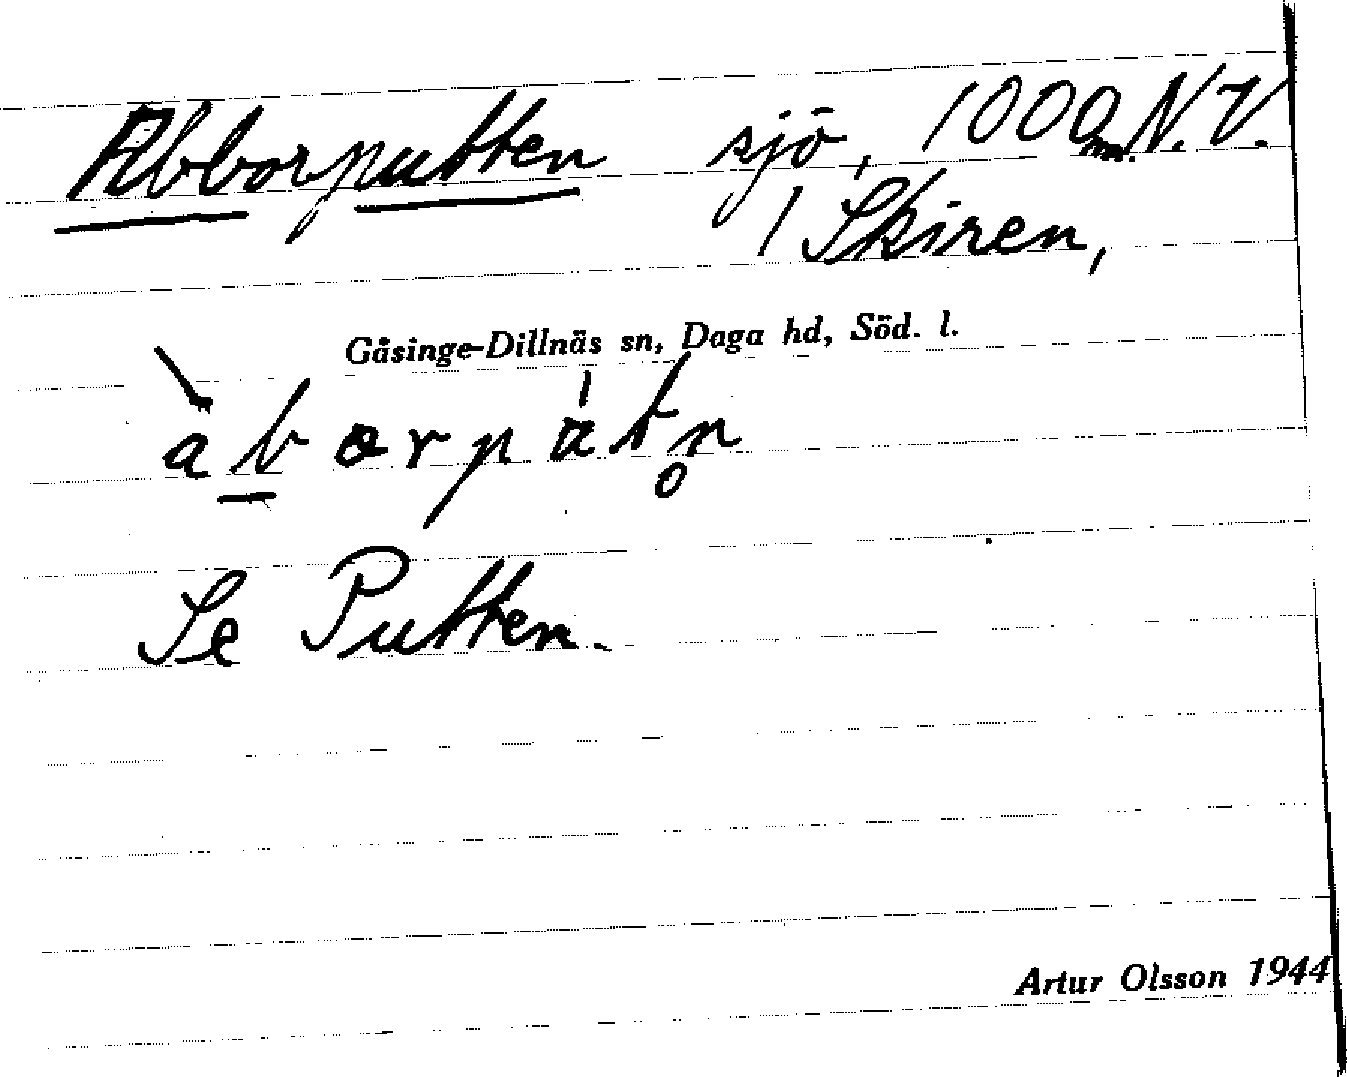 Abborputten sjö, 1000 m. N.V.
/ Skiren,
Gåsinge-Dillnäs sn, Daga hd, Söd. l.
àb̲orpátn̥
Se Putten.
Artur Olsson 1944